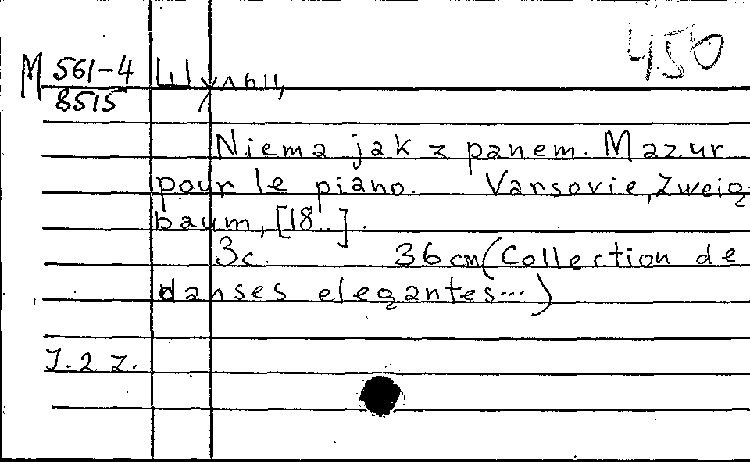 450
M 561-4 Шульц,
8515
Niema jak z panem. Mazur
pour le piano. Varsovie, Zweig
baum, [18..].
3c. 36 cm (Collection de
danses elegantes...)
J. 2 z.